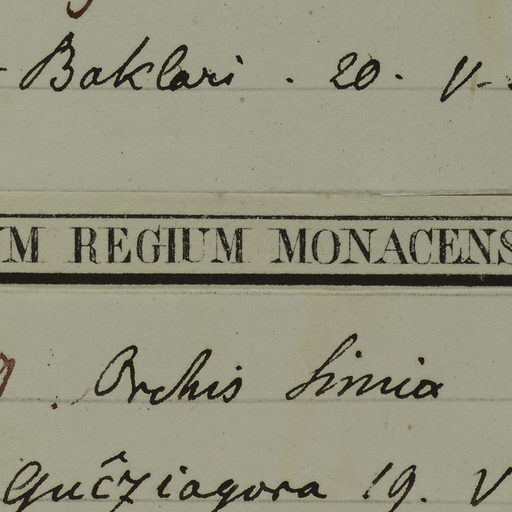 - Baklari . 20. V-
UM REGIUM MONACENS
. Orchis Simia
Gučziagora 19. V